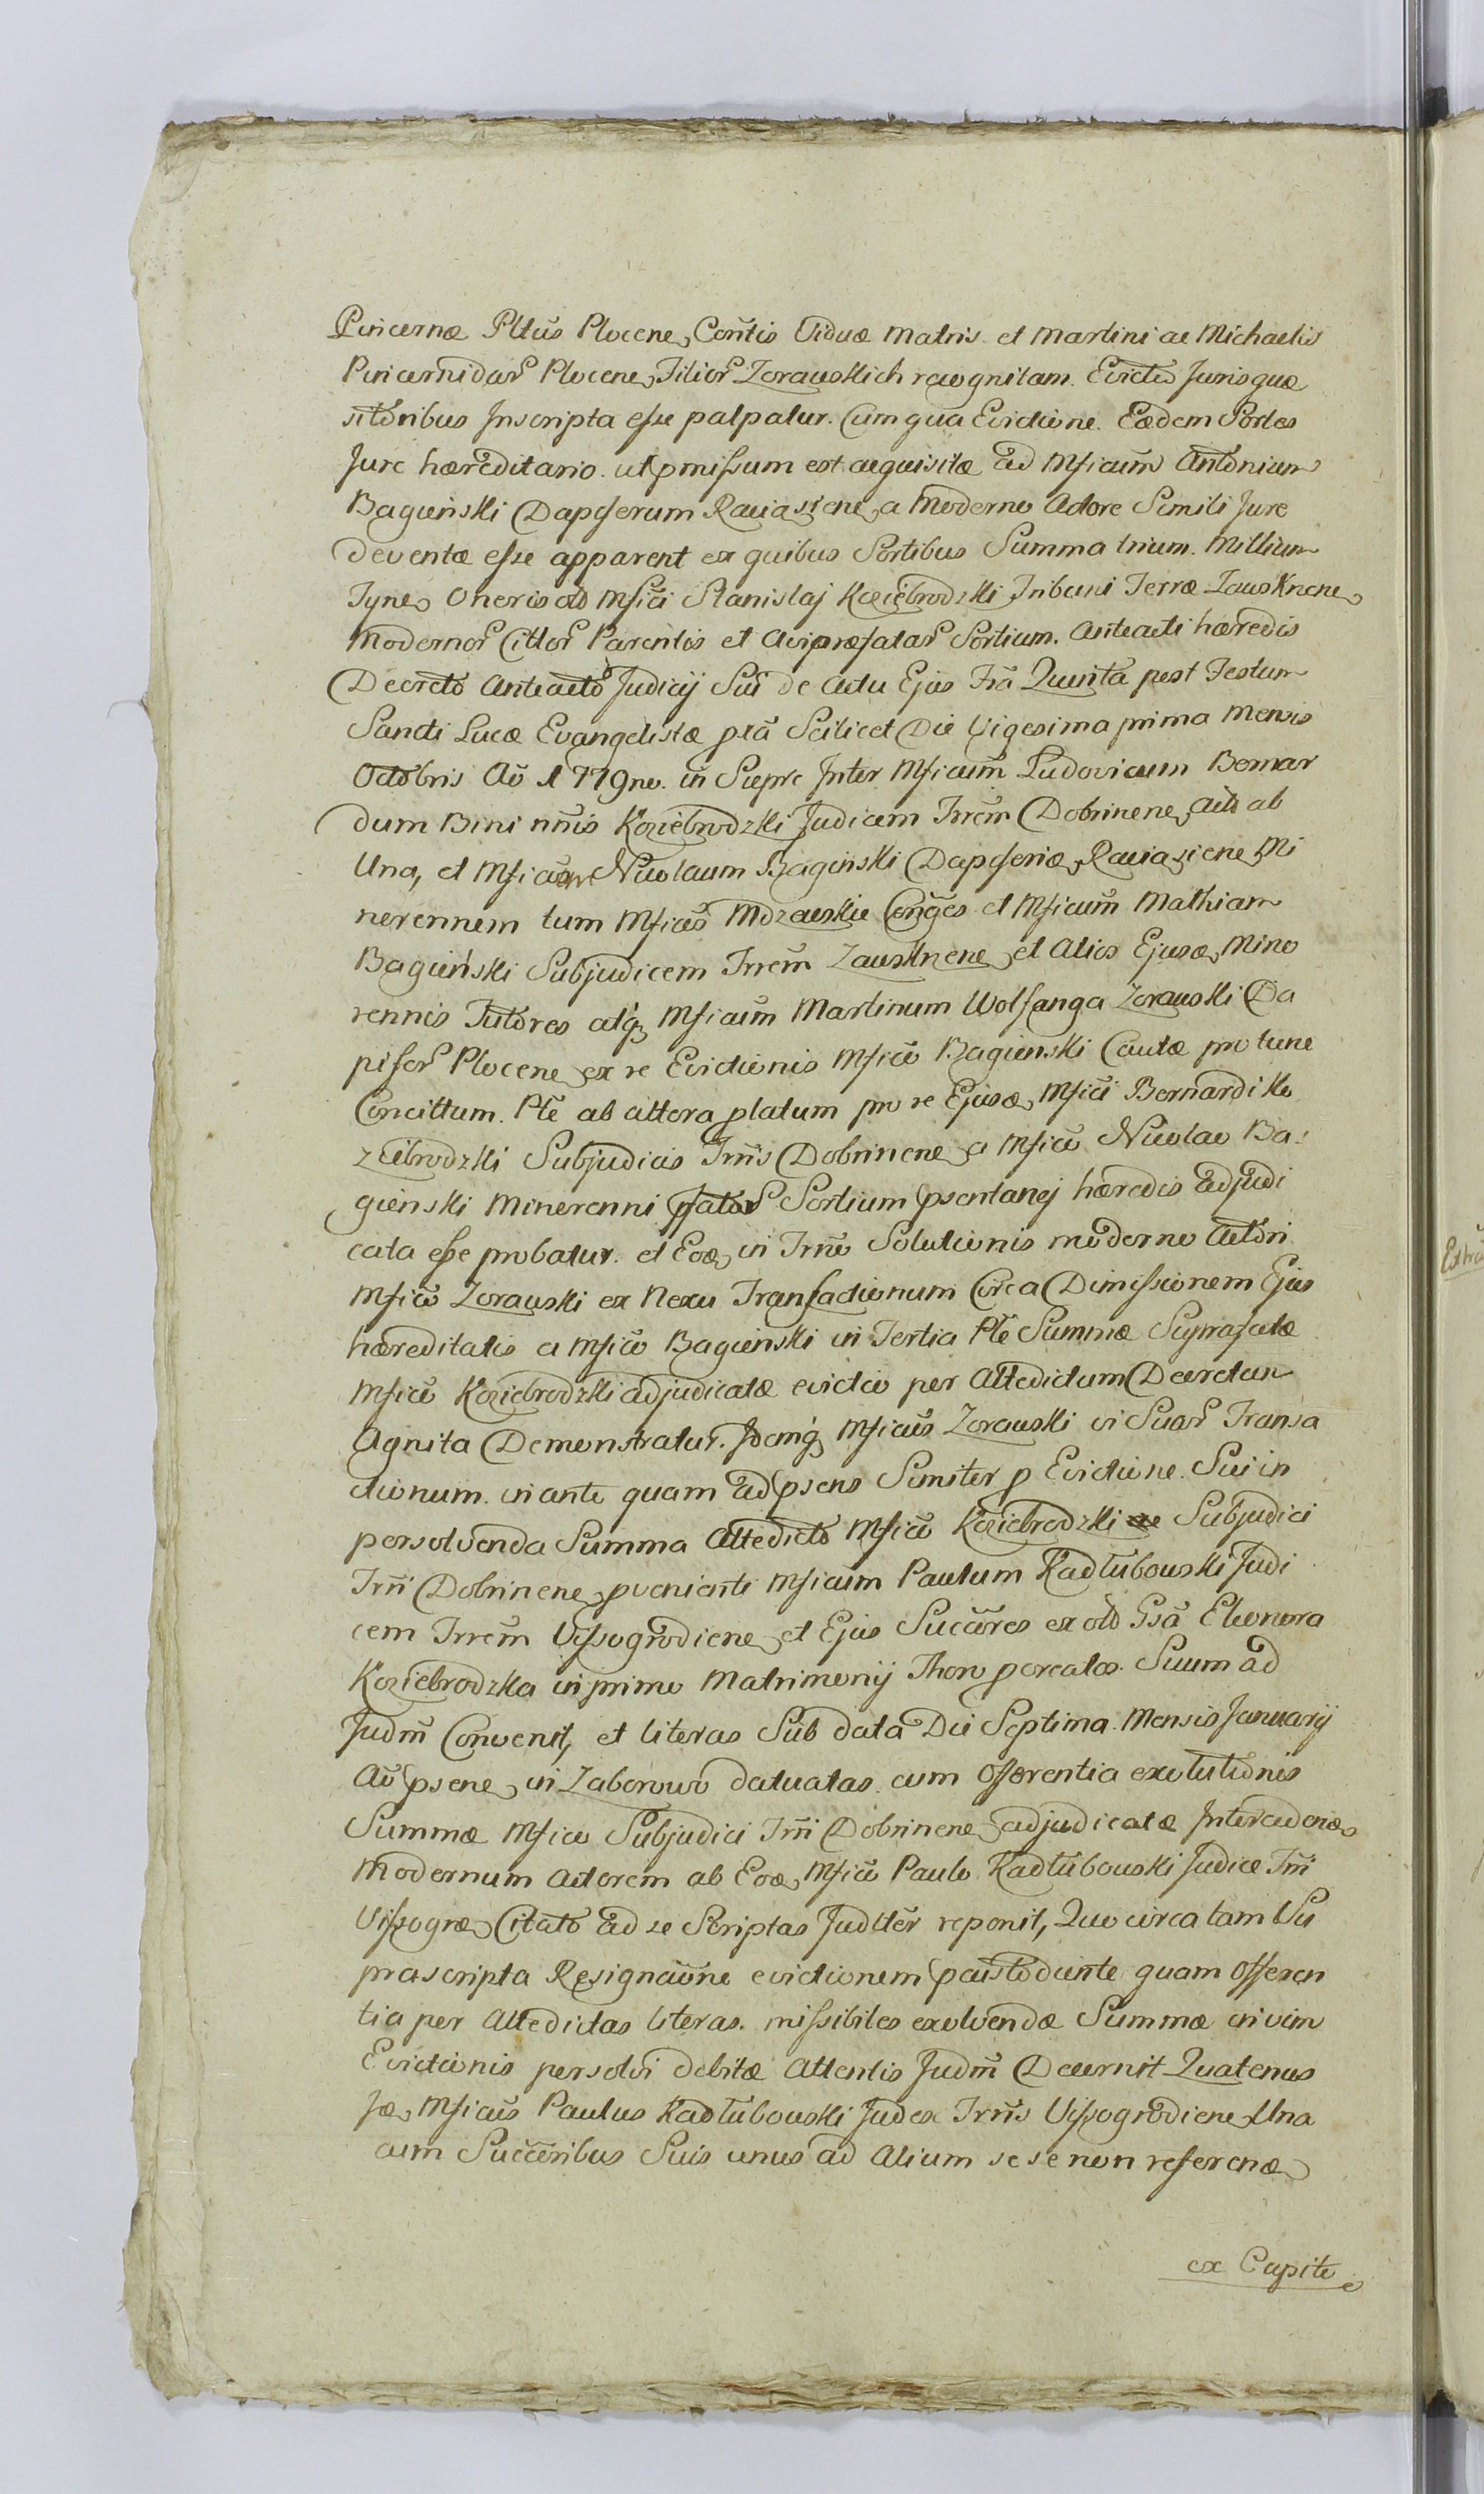 Pincernæ Pltūs Plocene, Coñtis Viduæ Matris et Martini ac Michaelis
Pincernidar̃ Plocene, Filior̃ Zorawskich recognitam. Evictio Juris quæ
sitoribus Inscripta esse palpatur. Cum qua Evictione. Eædem Sortes
Jure hæreditario. ut pmissum est acquisitæ ad Mficum̃ Antonium
Bagieński Dapiferum Raciasiene, a Moderno Actore Simili Jure
deventæ esse apparent ex quibus Sortibus Summa trium. Millium
Tyne, Oneris olo Mfici Stanislaj Koziebrodzki Tribuni Terræ Zawsknene,
Modernor̃ Cittor̃ Parentis et Avi præfatar̃ Sortium. Anteacti hæredis
Decreto Anteacto Judicij Sui de Actu Ejus Fr̃a Quinta post Festum
Sancti Lucæ Evangelistæ pxã Scilicet Die Vigesima prima Mensis
Octobris Añ 1779no. in Sieprc Inter Mficum̃ Ludovicum Bernar
dum Bini nñis Koziebrodzki Judicem Trrẽm Dobrinene, Actō ab
Una, et Mficum Nicolaum Bagieński Dapiferiæ, Raciasiene, Mi
norennem tum Mficos Mdzewskie Conges et Mficum̃ Mathiam
Bagieński Subjudicem Trrẽm Zawsknene, et Alios Ejusæ, Mino
rennis Tutores atq, Mficum̃ Martinum Wolfanga Zorawski Da
pifer̃ Plocene, ex re Evictionis Mfico Bagienski Cautæ pro tunc
Concittum. Ptẽ ab altera platum pro re Ejusæ, Mfici Bernardi Ko
ziebrodzki Subjudicis Trrñs Dobrinene, a Mfico Nicolao Ba:
gienski Minorenni pfatar̃ Sortium psentanej hæredis adjudi
cata esse probatur. et Eoæ, in Trñe Solutionis moderno Actori
Mfico Zorawski ex Nexu Transactionum Circa Dimissionem Ejus
hæreditatis a Mfico Bagieński in Tertia Ptẽ Summæ Suprafatæ
Mfico Koziebrodzki adjudicatæ evictio per Attedictum Decretum
Agnita Demonstratur. Idemq, Mficus Zorawski vi Suar̃ Transa
ctionum. in ante quam ad psens Simiter p Evictione. Sui in
persolvenda Summa Attedicto Mfico Koziebrodzki Subjudici
Trrñi Dobrinene, pveniente Mficum Paulum Kadlubowski Judi
cem Trrẽm Vissogrodiene, et Ejus Succores ex olo Gsã Eleonora
Koziebrodzka in primo Matrimonij Thoro pcreatos. Suum ad
Judm̃ Convenit, et literas Sub data Die Septima. Mensis Januarij
Añ psene, in Zaborowo datuatas. cum Offerentia exolutionis
Summæ Mfico Subjudici Trrñi Dobrinene, adjudicatæ Intercedenæ,
Modernum Actorem ab Eoæ, Mfico Paulo Kadlubowski Judice Trñi
Vissogræ, Citato ad se Scriptas Juditer reponit, Quo circa tam Su
prascripta Resignaōne evictionem pcustodiente quam Offeren
tia per Attedictas literas. missibiles exolvendæ Summæ in vim
Evictionis persolvi debitæ Attentis Judm̃ Decernit Quatenus
Iæ, Mficus Paulus Kadlubowski Judex Trrñs Vissogrodiene, Una
cum Succoribus Suis unus ad Alium se se non referenæ,
ex Capite